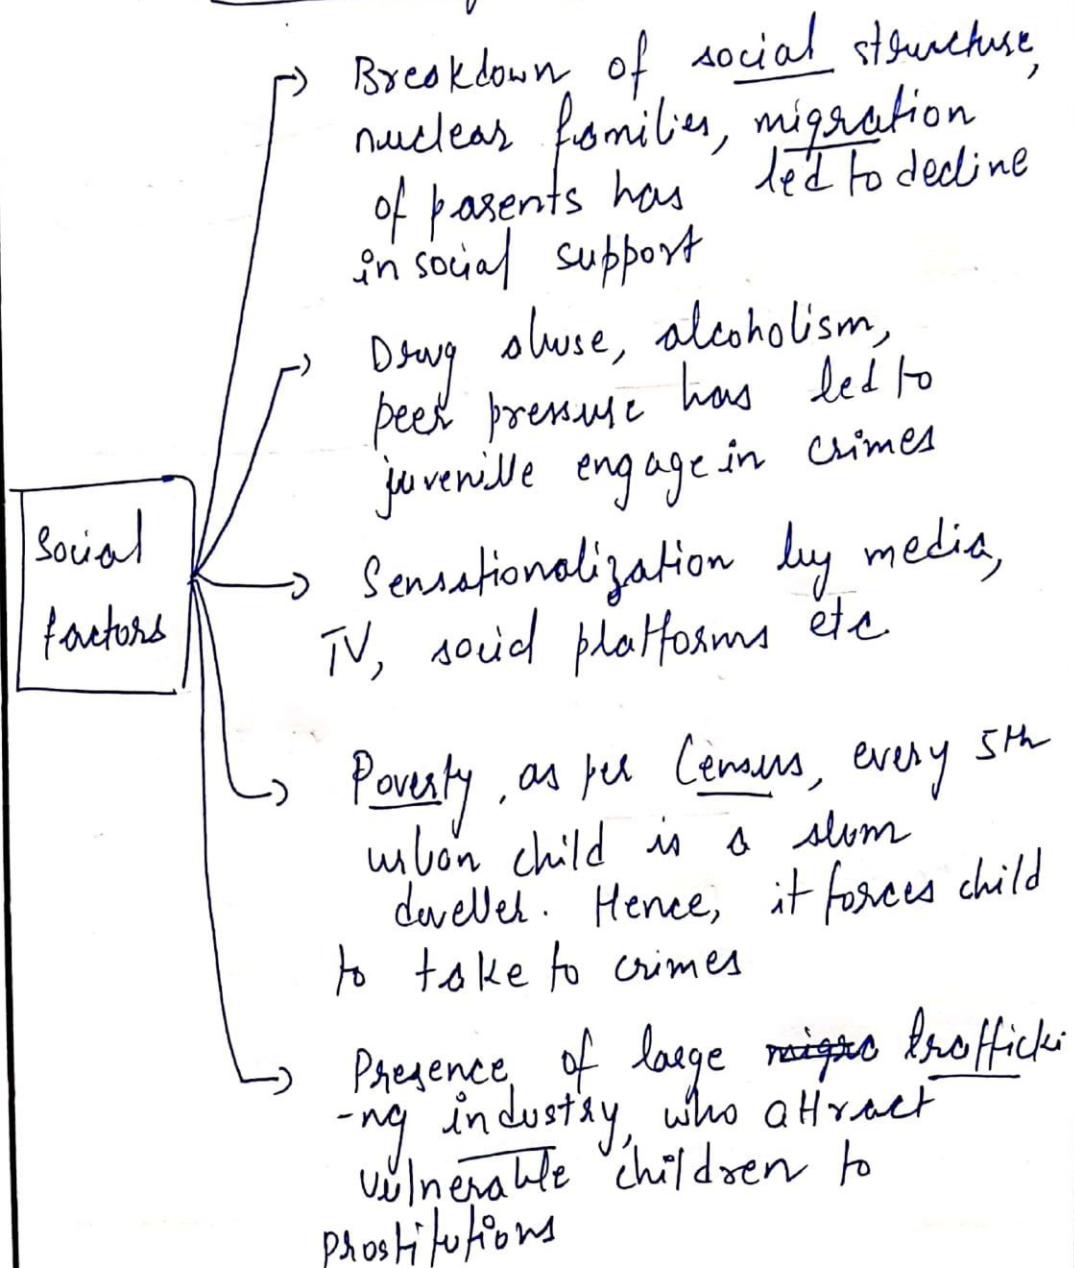 Breakdown of social structure,
nuclear families, migration
of parents has led to decline
in social support
Drug abuse, alcoholism,
peer pressure has led to
juvenille engage in crimes
Social
factors
Sensationalization by media,
TV, social platforms etc
Poverty, as per Census, every 5th
urban child is a slum
dweller. Hence, it forces child
to take to crimes
Presence of large migra trafficki
-ng industry, who attract
vulnerable children to
prostitutions